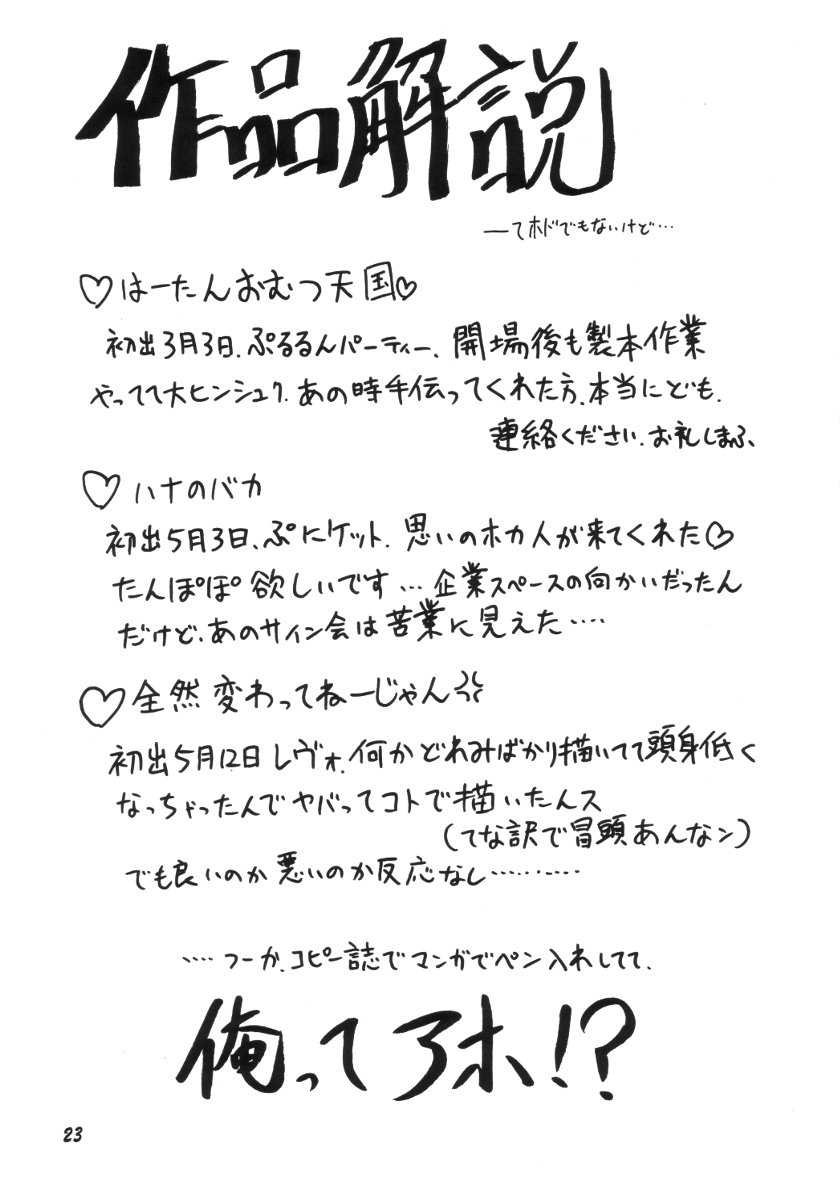 作品解説
―てホドでもないけど…
♡はーたんおむつ天国♡
初出3月3日、ぷるるんパーティー、開場後も製本作業
やってて大ヒンシュク。あの時手伝ってくれた方、本当にども。
連絡ください。お礼しまふ、
♡ハナのバカ
初出5月3日、ぷにケット。思いのホカ人が来てくれた♡
たんぽぽ欲しいです…企業スペースの向かいだったん
だけど、あのサイン会は苦業に見えた‥‥
♡全然変わってねーじゃん
初出5月12日レヴォ。何かどれみばかり描いてて頭身低く
なっちゃったんでヤバってコトで描いたんス
(てな訳で冒頭あんなン)
でも良いのか悪いのか反応なし………
‥‥つーか、コピー誌でマンガでペン入れしてて、
俺ってアホ!?
23